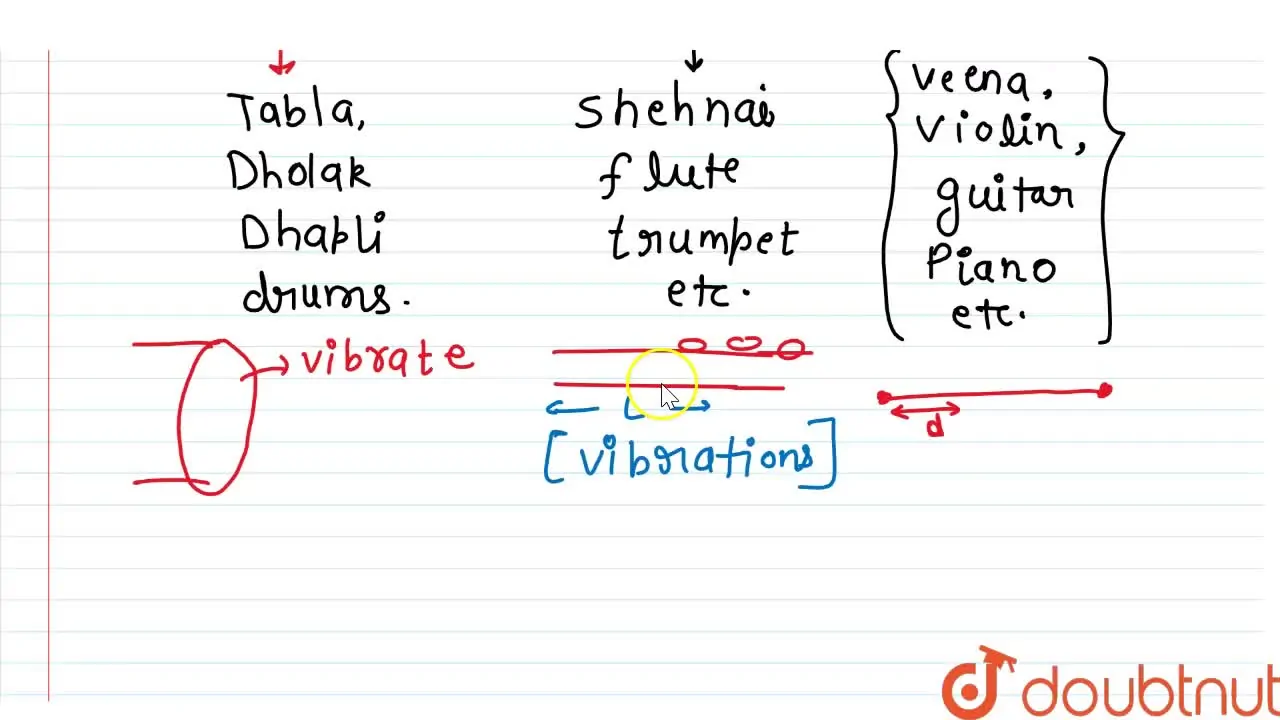 Tabla,
Dholak
Dhapli
drums.
vibrate
Shehnai
flute
trumpet
etc.
[vibrations]
Veena,
Violin,
guitar
Piano
etc.
d
doubtnut